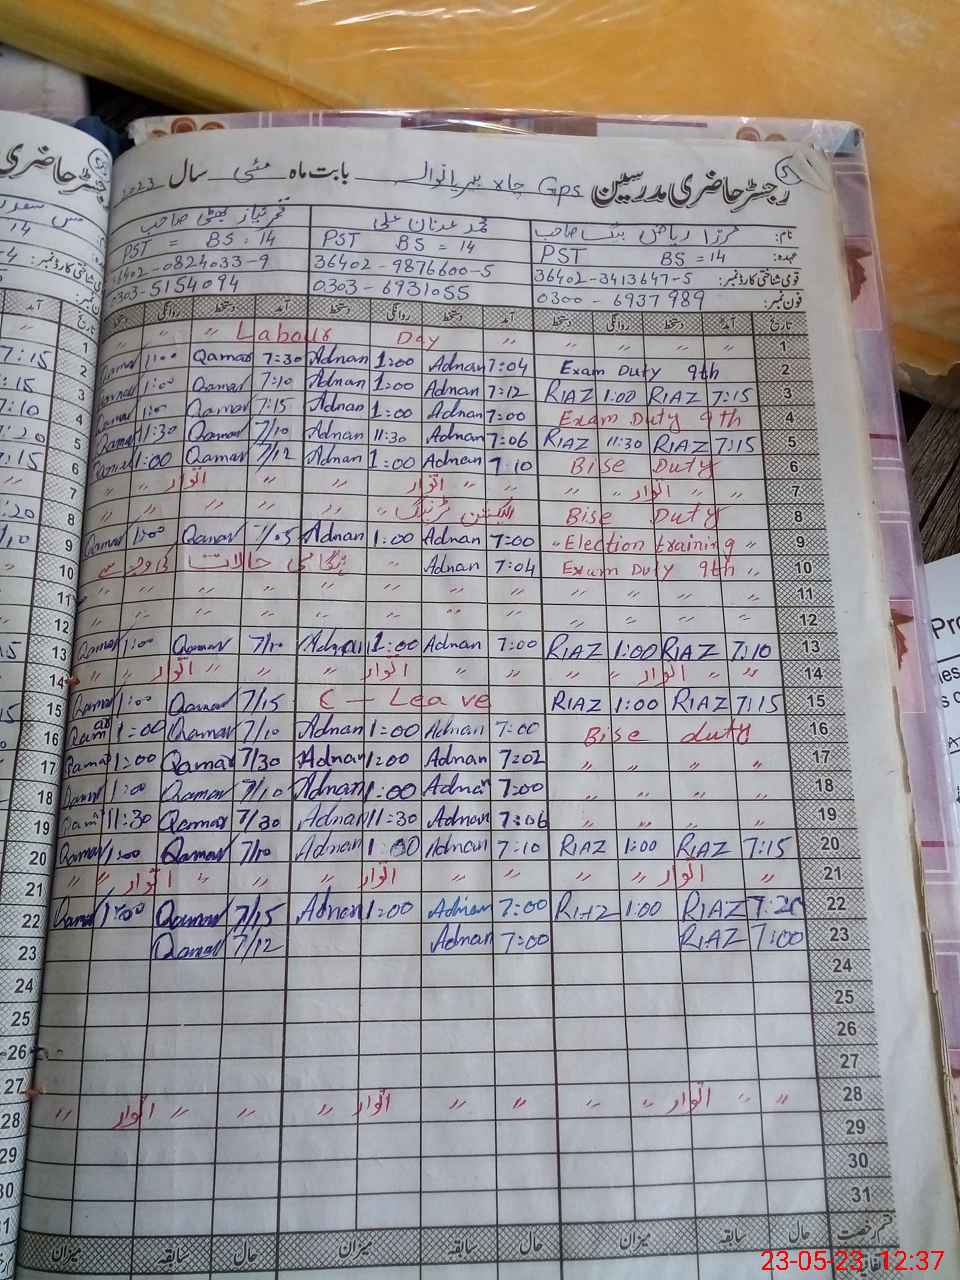 رجسٹر حاضری مدرسین Gps چاہ بابت ماہ مئی سال 2023
نام: مرزا ریاض بیگ صاحب محمد عدنان علی صاحب
عہدہ: PST BS=14 PST BS=14 PST = BS=14
قومی شناختی کارڈ نمبر: 36402-3413647-5 36402-9876600-5 36402-0824033-9
فون نمبر: 0300-6937989 0303-6931055 0303-5154094
تاریخ آمد دستخط روانگی دستخط آمد دستخط روانگی دستخط آمد دستخط روانگی دستخط
1 " " " " Labour Day " "
2 Exam Duty 9th 7:04 Adnan 1:00 Adnan 7:30 Qamar 1:00 Qamar
3 7:15 RIAZ 1:00 RIAZ 7:12 Adnan 1:00 Adnan 7:10 Qamar 1:00 Qamar
4 Exam Duty 9th 7:00 Adnan 1:00 Adnan 7:15 Qamar 1:00 Qamar
5 7:15 RIAZ 11:30 RIAZ 7:06 Adnan 11:30 Adnan 7/10 Qamar 11:30 Qamar
6 Bise Duty 7:10 Adnan 1:00 Adnan 7/12 Qamar 1:00 Qamar
7 " " اتوار " " " اتوار " " اتوار " "
8 Bise Duty الیکشن ٹریننگ " " " " "
9 " Election training " 7:00 Adnan 1:00 Adnan 7/05 Qamar 1:00 Qamar
10 Exam Duty 9th " 7:04 Adnan " ہنگامی حالات کی وجہ سے
11 " " " " " " " " " "
12 " " " " " " " " " "
13 7:10 RIAZ 1:00 RIAZ 7:00 Adnan 1:00 Adnan 7/10 Qamar 1:00 Qamar
14 " " اتوار " " " اتوار " " " اتوار "
15 7:15 RIAZ 1:00 RIAZ C - Leave 7/15 Qamar 1:00 Qamar
16 Bise duty 7:00 Adnan 1:00 Adnan 7/10 Qamar 1:00 Qamar
17 " " " " 7:02 Adnan 1:00 Adnan 7/30 Qamar 1:00 Qamar
18 " " " " 7:00 Adnan 1:00 Adnan 7/10 Qamar 1:00 Qamar
19 " " " " 7:06 Adnan 11:30 Adnan 7/30 Qamar 11:30 Qamar
20 7:15 RIAZ 1:00 RIAZ 7:10 Adnan 1:00 Adnan 7/10 Qamar 1:00 Qamar
21 " " اتوار " " " اتوار " " " اتوار " "
22 7:20 RIAZ 1:00 RIAZ 7:00 Adnan 1:00 Adnan 7/15 Qamar 1:00 Qamar
23 7:00 RIAZ 7:00 Adnan 7/12 Qamar
24
25
26
27
28 " " اتوار " " " " اتوار " " " اتوار "
29
30
31
حال سابقہ میزان حال سابقہ میزان حال سابقہ میزان
23-05-23 12:37